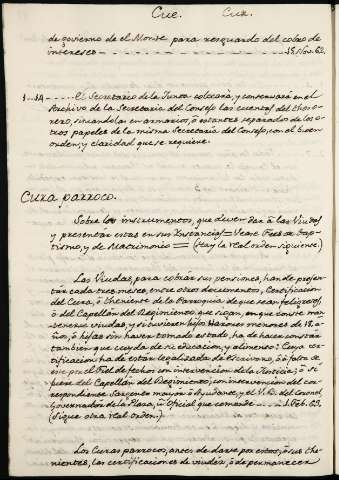 Cue. Cur.
de govierno de el Monte para resguardo del cobro de
intereses 18. Nov. 62.
1-14 El Secretario de la Junta colocará, y conservará en el
Archivo de la Secretaria del Consejo las cuentas del thesorero,
situandolas en armarios, ó estantes separados de los otros
papeles de la misma Secretaria del Consejo, con el buen
orden, y claridad que se requiere.
Cura parroco.
Sobre los instrumentos, que deven dar á las Viudas
y presentar estas en sus Instancias = Vease Fees de baptismo,
y de Matrimonio = (Hay la real orden siguiente.)
Las Viudas para cobrar sus pensiones, han de presentar
cada tres meses, entre otros documentos, Certificacion
del Cura, ó Theniente de la Parroquia de que sean feligreses,
ó del Capellan del Regimiento que sigan, en que conste mantenerse
viudas, y si tuvieren hijos Varones menores de 18. años,
ó hijas sin haver tomado estado, ha de hacer constar
tambien que cuida de su educacion, y alimento: Cuya certificacion
ha de estar legalizada de Escrivano, ó á falta de
este por el Fiel de fechos con intervencion de la Justicia; ó si
fuere del Capellan del Regimiento, con intervencion del correspondiente
Sargento mayor, ó Ayudante, y el V.º B.º del Coronel
Governador de la Plaza, ú Oficial que comande 1. Feb. 63.
(Sigue otra real orden.)
Los Curas parrocos, antes de darse por estos, ó sus thenientes,
las certificaciones de viudéz, ó de permanecer